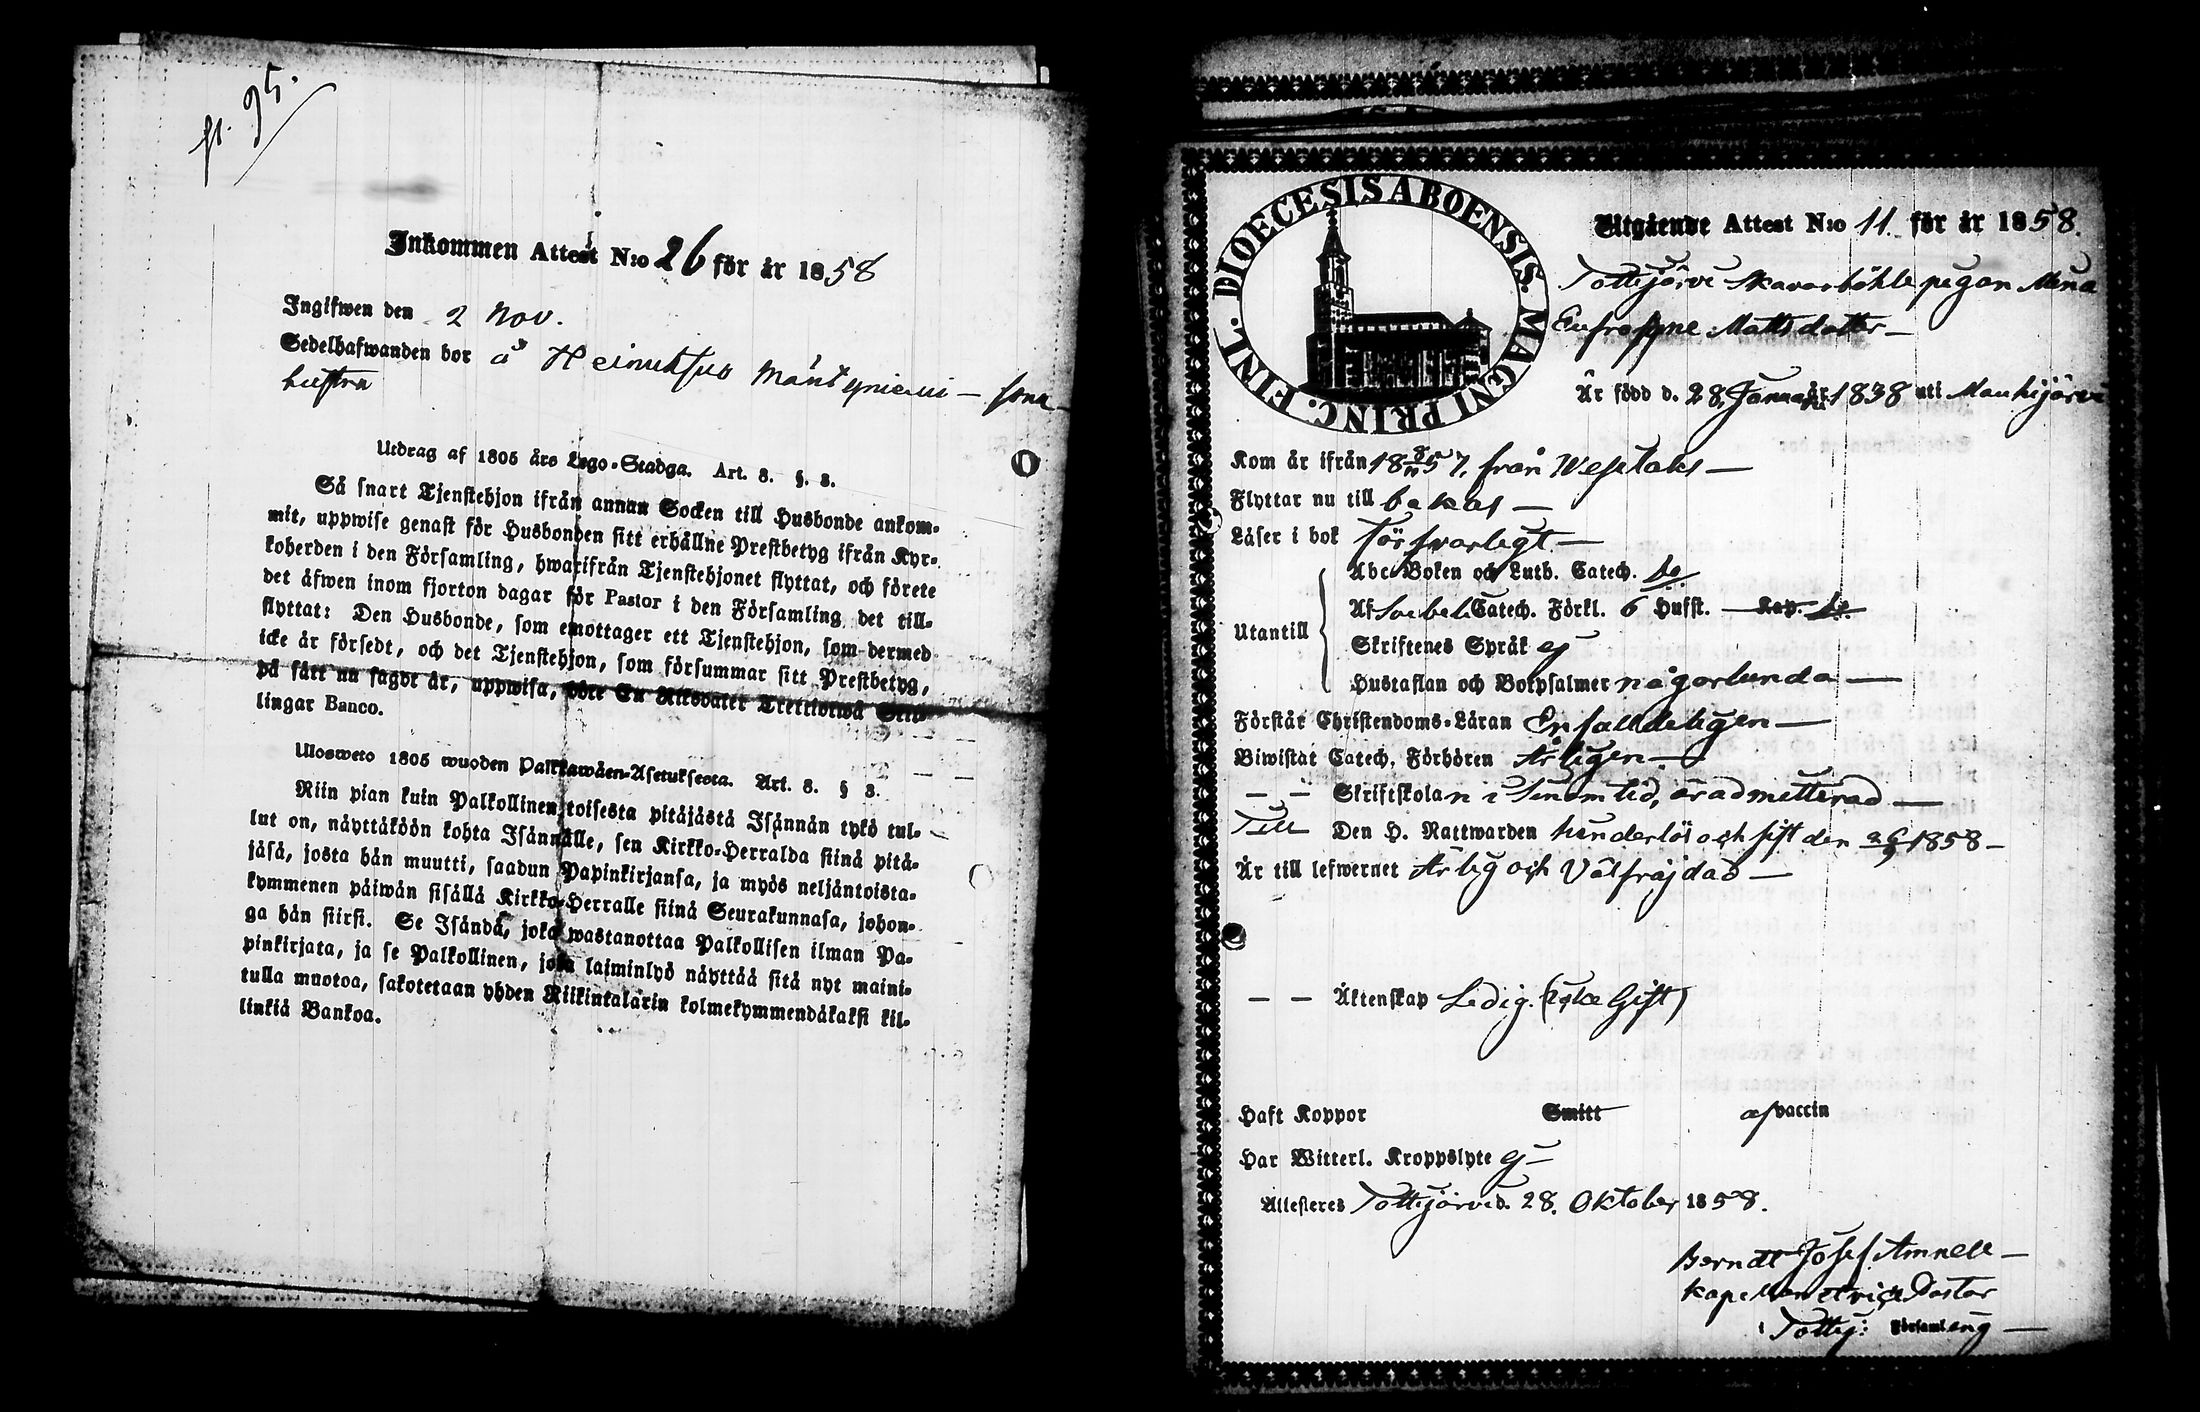 p. 95.
Inkommen Attest N:o 26 för år 1858
Ingifwen den 2 Nov.
Sedelhafwanden bor å Heinuksuo Mäntyniemi – sona
hustru
Utdrag af 1805 års Lego-Stadga. Art. 8. §. 3.
Så snart Tjenstehjon ifrån annan Socken till Husbonde ankom-
mit, uppwise genast för Husbonden sitt erhållne Prestbetyg ifrån Kyr-
koherden i den Församling, hwarifrån Tjenstehjonet flyttat, och förete
det äfwen inom fjorton dagar för Pastor i den Församling det till-
flyttat: Den Husbonde, som emottager ett Tjenstehjon, som dermed
icke är försedt, och det Tjenstehjon, som försummar sitt Prestbetyg,
på sätt nu sagdt är, uppwisa, böte En Riksdaler Trettiotwå Skil-
lingar Banco.
Ulosweto 1805 wuoden Palkkawäen-Asetuksesta. Art. 8. § 3.
Niin pian kuin Palkollinen toisesta pitäjästä Isännän tykö tul-
lut on, näyttäköön kohta Isännälle, sen Kirkko-Herralda siinä pitä-
jäsä, josta hän muutti, saadun Papinkirjansa, ja myös neljäntoista-
kymmenen päiwän sisällä Kirkko-Herralle siinä Seurakunnasa, johon-
ga hän siirsi. Se Isändä, joka wastanottaa Palkollisen ilman Pa-
pinkirjata, ja se Palkollinen, joka laiminlyö näyttää sitä nyt maini-
tulla muotoa, sakotetaan yhden Riikintalarin kolmekymmendäkaksi kil-
linkiä Bankoa.
FINL. DIOECESIS ABOENSIS. MAGNI PRINC.
Utgående Attest N:o 11. för år 1858.
Tottijärvi Skararböhle pigan Mina
Eufrosyne Mattsdotter –
Är född d. 28. Januari år 1838 uti Mouhijärvi
Kom år ifrån 18 8/11 57. från Wesilaks –
Flyttar nu till bakas –
Läser i bok försvarligt –
Utantill
Abc-Boken och Luth. Catech. do.
Af Soebeli Catech. Förkl. 6 Hufst. – Kap. do.
Skriftenes Språk ej
Hustaflan och Botpsalmer någorlunda –
Förstår Christendoms-Läran Enfalldeligen –
Biwistat Catech. Förhören Årligen –
– – Skriftskolan i sinom tid, är admitterad –
Till Den H. Nattwarden hinderlös och sist den 26/9 1858 –
Är till lefwernet Ärlig och Välfräjdad –
– – Äktenskap Ledig. (icke Gift)
Haft Koppor Smitt af vaccin
Har Witterl. Kroppslyte ej –
Attesteres Tottijärvi d. 28. Oktober 1858.
Berndt Josef Amnell –
Kapellan et vice Pastor
i Tottij: Församling –